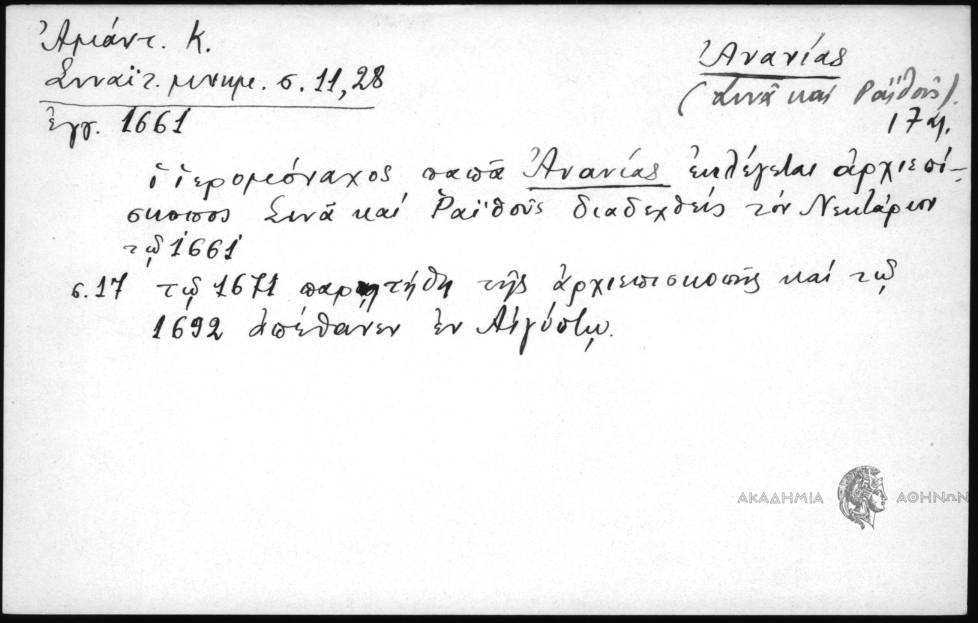 Ἀμάντ. Κ.
Σιναϊτ. μνημ. σ. 11,28
ἔγγ. 1661
Ἀνανίας
(Σινᾶ καί Ραϊθοῦς).
17 αἰ.
ὁ ἱερομόναχος παπᾶ Ἀνανίας ἐκλέγεται ἀρχιεπί-
σκοπος Σινᾶ καί Ῥαϊθοῦς διαδεχθείς τόν Νεκτάριον
τῷ 1661
σ. 17 τῷ 1671 παρῃτήθη τῆς ἀρχιεπισκοπῆς καί τῷ
1692 ἀπέθανεν ἐν Αἰγύπτῳ.
ΑΚΑΔΗΜΙΑ ΑΘΗΝΩΝ